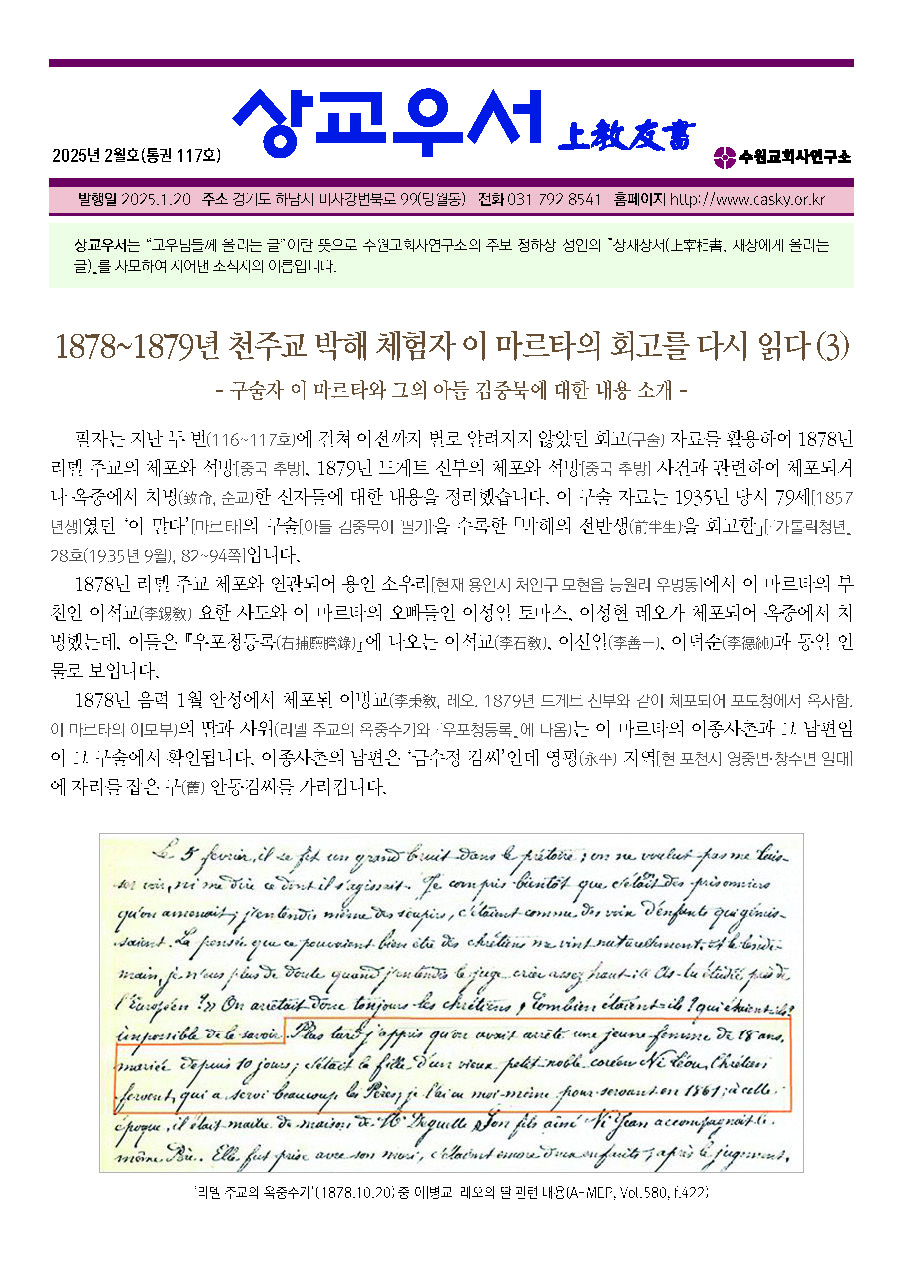 상교우서 上教友書
2025년 2월호(통권 117호)
수원교회사연구소
발행일 2025.1.20 주소 경기도 하남시 미사강변북로 99(망월동) 전화 031 792 8541 홈페이지 http://www.casky.or.kr
상교우서는 “교우님들께 올리는 글”이란 뜻으로 수원교회사연구소의 주보 정하상 성인의 『상재상서(上宰相書, 재상에게 올리는
글)』를 사모하여 지어낸 소식지의 이름입니다.
1878~1879년 천주교 박해 체험자 이 마르타의 회고를 다시 읽다 (3)
- 구술자 이 마르타와 그의 아들 김중묵에 대한 내용 소개 -
필자는 지난 두 번(116~117호)에 걸쳐 이전까지 별로 알려지지 않았던 회고(구술) 자료를 활용하여 1878년
리델 주교의 체포와 석방[중국 추방], 1879년 드게트 신부의 체포와 석방[중국 추방] 사건과 관련하여 체포되거
나 옥중에서 치명(致命, 순교)한 신자들에 대한 내용을 정리했습니다. 이 구술 자료는 1935년 당시 79세[1857
년생]였던 ‘이 말다’[마르타]의 구술[아들 김중묵이 필기]을 수록한 「박해의 전반생(前半生)을 회고함」[『가톨릭청년』
28호(1935년 9월), 82~94쪽]입니다.
1878년 리델 주교 체포와 연관되어 용인 소우리[현재 용인시 처인구 모현읍 능원리 우명동]에서 이 마르타의 부
친인 이석교(李錫敎) 요한 사도와 이 마르타의 오빠들인 이성일 토마스, 이성헌 레오가 체포되어 옥중에서 치
명했는데, 이들은 『우포청등록(右捕廳謄錄)』에 나오는 이석교(李石敎), 이선일(李善一), 이덕순(李德純)과 동일 인
물로 보입니다.
1878년 음력 1월 안성에서 체포된 이병교(李秉敎, 레오, 1879년 드게트 신부와 같이 체포되어 포도청에서 옥사함,
이 마르타의 이모부)의 딸과 사위(리델 주교의 옥중수기와 『우포청등록』에 나옴)는 이 마르타의 이종사촌과 그 남편임
이 그 구술에서 확인됩니다. 이종사촌의 남편은 ‘금수정 김씨’인데 영평(永平) 지역[현 포천시 영중면·창수면 일대]
에 자리를 잡은 구(舊) 안동김씨를 가리킵니다.
Le 5 fevrier, il se fit un grand bruit dans le prétoire ; on ne voulut pas me lais-
ser voir, ni me dire ce dont il s'agissait. Je compris bientôt que c'était des prisonniers
qu'on amenait ; j'entendis même des soupirs, c'étaient comme des voix d'enfants qui gémis-
saient. La pensée que ce pouvaient bien être des chrétiens me vint naturellement. Et le lende-
main, je n'eus plus de doute quand j'entendis le juge crier assez haut : « As-tu étudié près de
l'Européen ?» On arrêtait donc toujours les chrétiens ; Combien étaient-ils ? qui étaient-ils ?
impossible de le savoir. Plus tard j'appris qu'on avait arrêté une jeune femme de 18 ans,
mariée depuis 10 jours ; c'était la fille d'un vieux petit noble coréen Ni Léon, Chrétien
fervent, qui a servi beaucoup les Pères ; je l'ai eu moi-même pour servant en 1861 ; à cette
époque, il était maître de maison de Mr Deguette, Son fils aîné Ni Jean accompagnait le
même Père. Elle fut prise avec son mari, c'étaient encore deux enfants ; après le jugement,
‘리델 주교의 옥중수기’(1878.10.20) 중 이병교 레오의 딸 관련 내용(A-MEP, Vol.580, f.422)